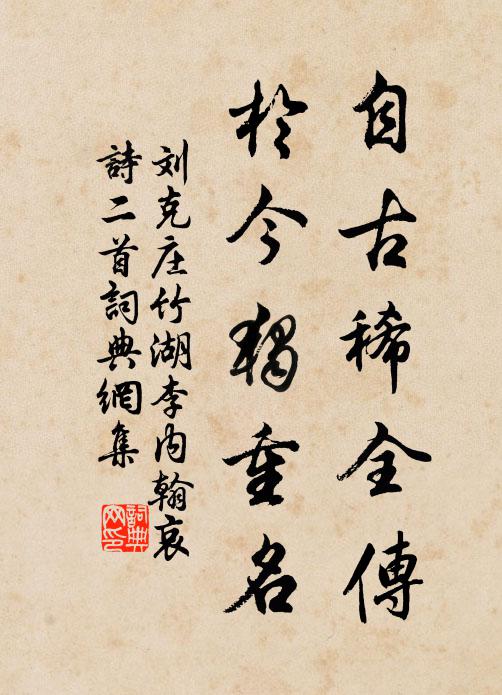 自古稀全傳
於今獨重名
刘克庄竹湖李内翰哀
詩二首詞典網集
詞典
网印